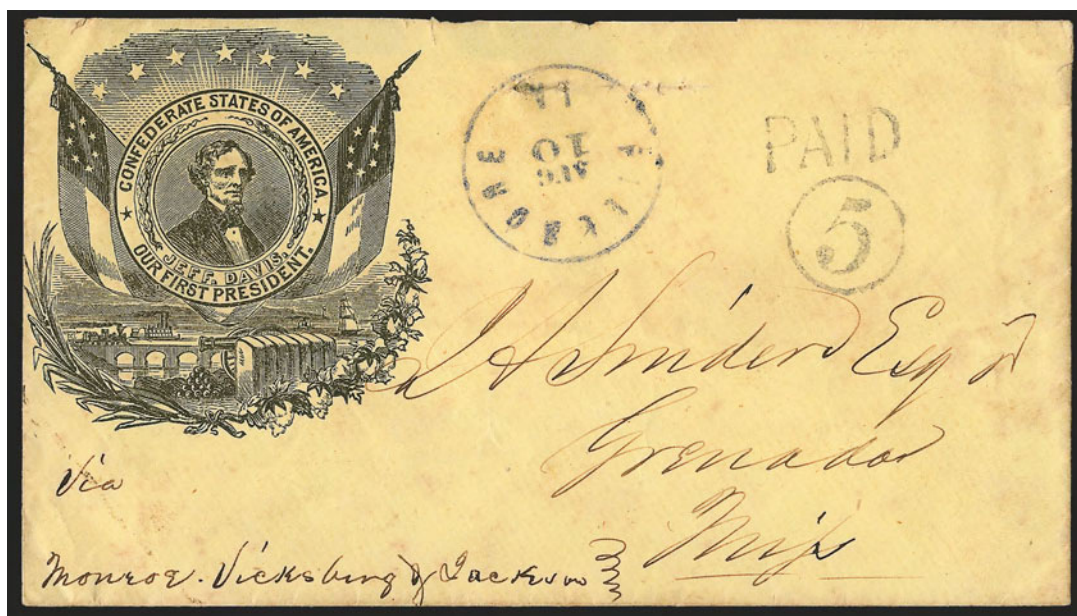 CONFEDERATE STATES OF AMERICA.
JEFF. DAVIS.
OUR FIRST PRESIDENT.
LA
AUG
10
PAID
5
Esqr
Grenada
Miss
Via
Monroe. Vicksburg & Jackson